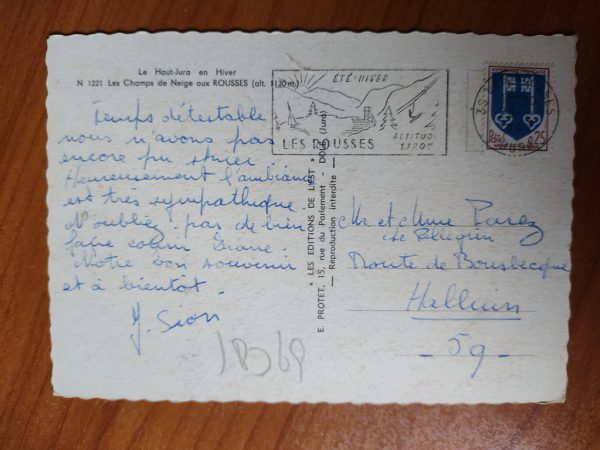 Le Haut-Jura en Hiver
N 1221 Les Champs de Neige aux ROUSSES (alt. 1130 m)
Temps détestable
nous n'avons pas
encore pu skier.
Heureusement l'ambiance
est très sympathique.
N'oubliez pas de bien
faire courir Diane.
Notre bon souvenir
et à bientôt.
J. Sion
"LES EDITIONS DE L'EST"
E. PROTET, 15, rue du Parlement - DOLE (Jura)
Reproduction interdite
ÉTÉ-HIVER
LES ROUSSES
ALTITUDE
REPUBLIQUE FRANÇAISE
Postes
0,25
Mr et Mme Parez
Le Pélegrin
Route de Bousbecque
Halluin
- 59 -